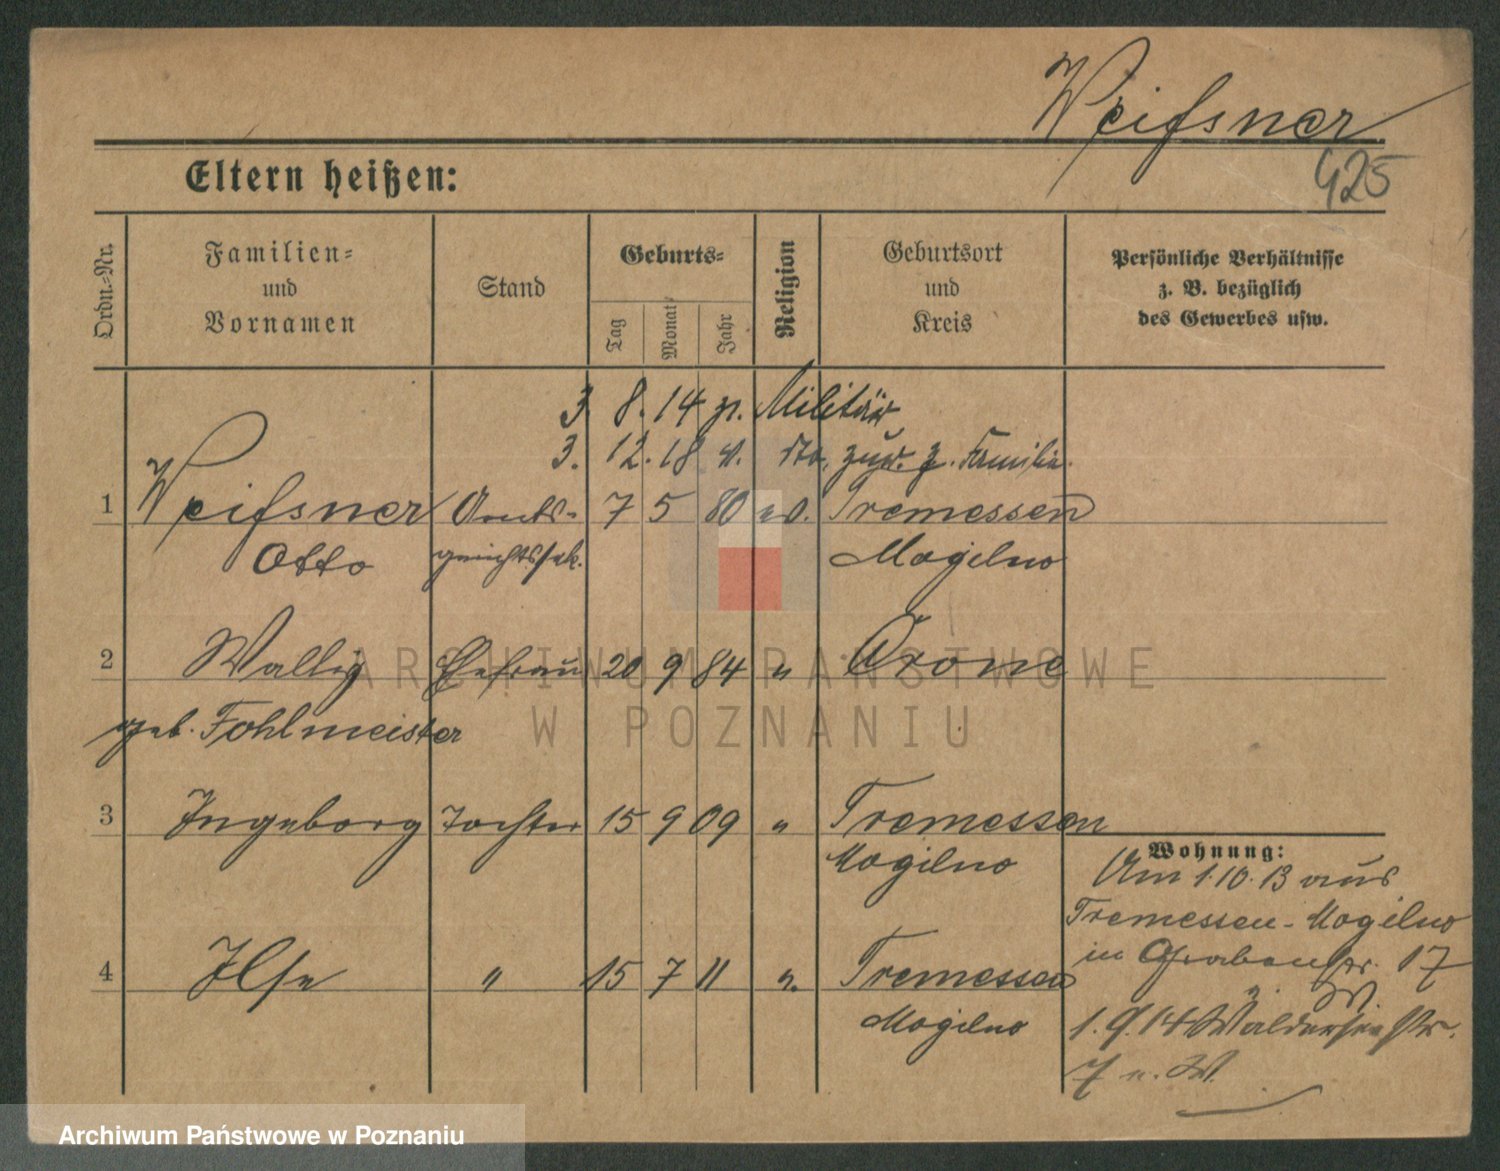 Weifsner
425
Eltern heißen:
Ordn.-Nr.
Familien-
und
Vornamen
Stand
Geburts-
Tag
Monat
Jahr
Religion
Geburtsort
und
Kreis
Persönliche Verhältnisse
z. B. bezüglich
des Gewerbes usw.
3. 8. 14 z. Militär
3. 12. 18 v. zur. z. Familie.
1 Weifsner Amts- 7 5 80 ev. Tremessen
Otto gerichtssek. Mogilno
2 Wally Ehefrau 20 9 84 " Crone
geb. Fohlmeister
3 Ingeborg Tochter 15 9 09 " Tremessen
Mogilno
4 Ilse " 15 7 11 ". Tremessen
Mogilno
Wohnung:
Am 1.10.13 aus
Tremessen-Mogilno
in Grabenstr. 17
1.9.14 Walderseestr.
7 W.
ARCHIWUM PAŃSTWOWE
W POZNANIU
Archiwum Państwowe w Poznaniu